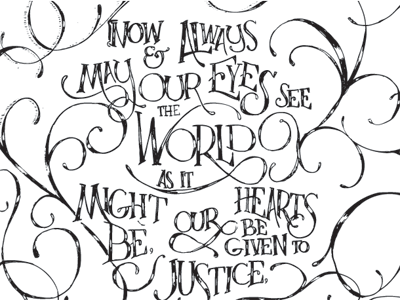 NOW & ALWAYS
MAY OUR EYES SEE
THE
WORLD
AS IT
MIGHT BE, OUR HEARTS BE GIVEN TO
JUSTICE,